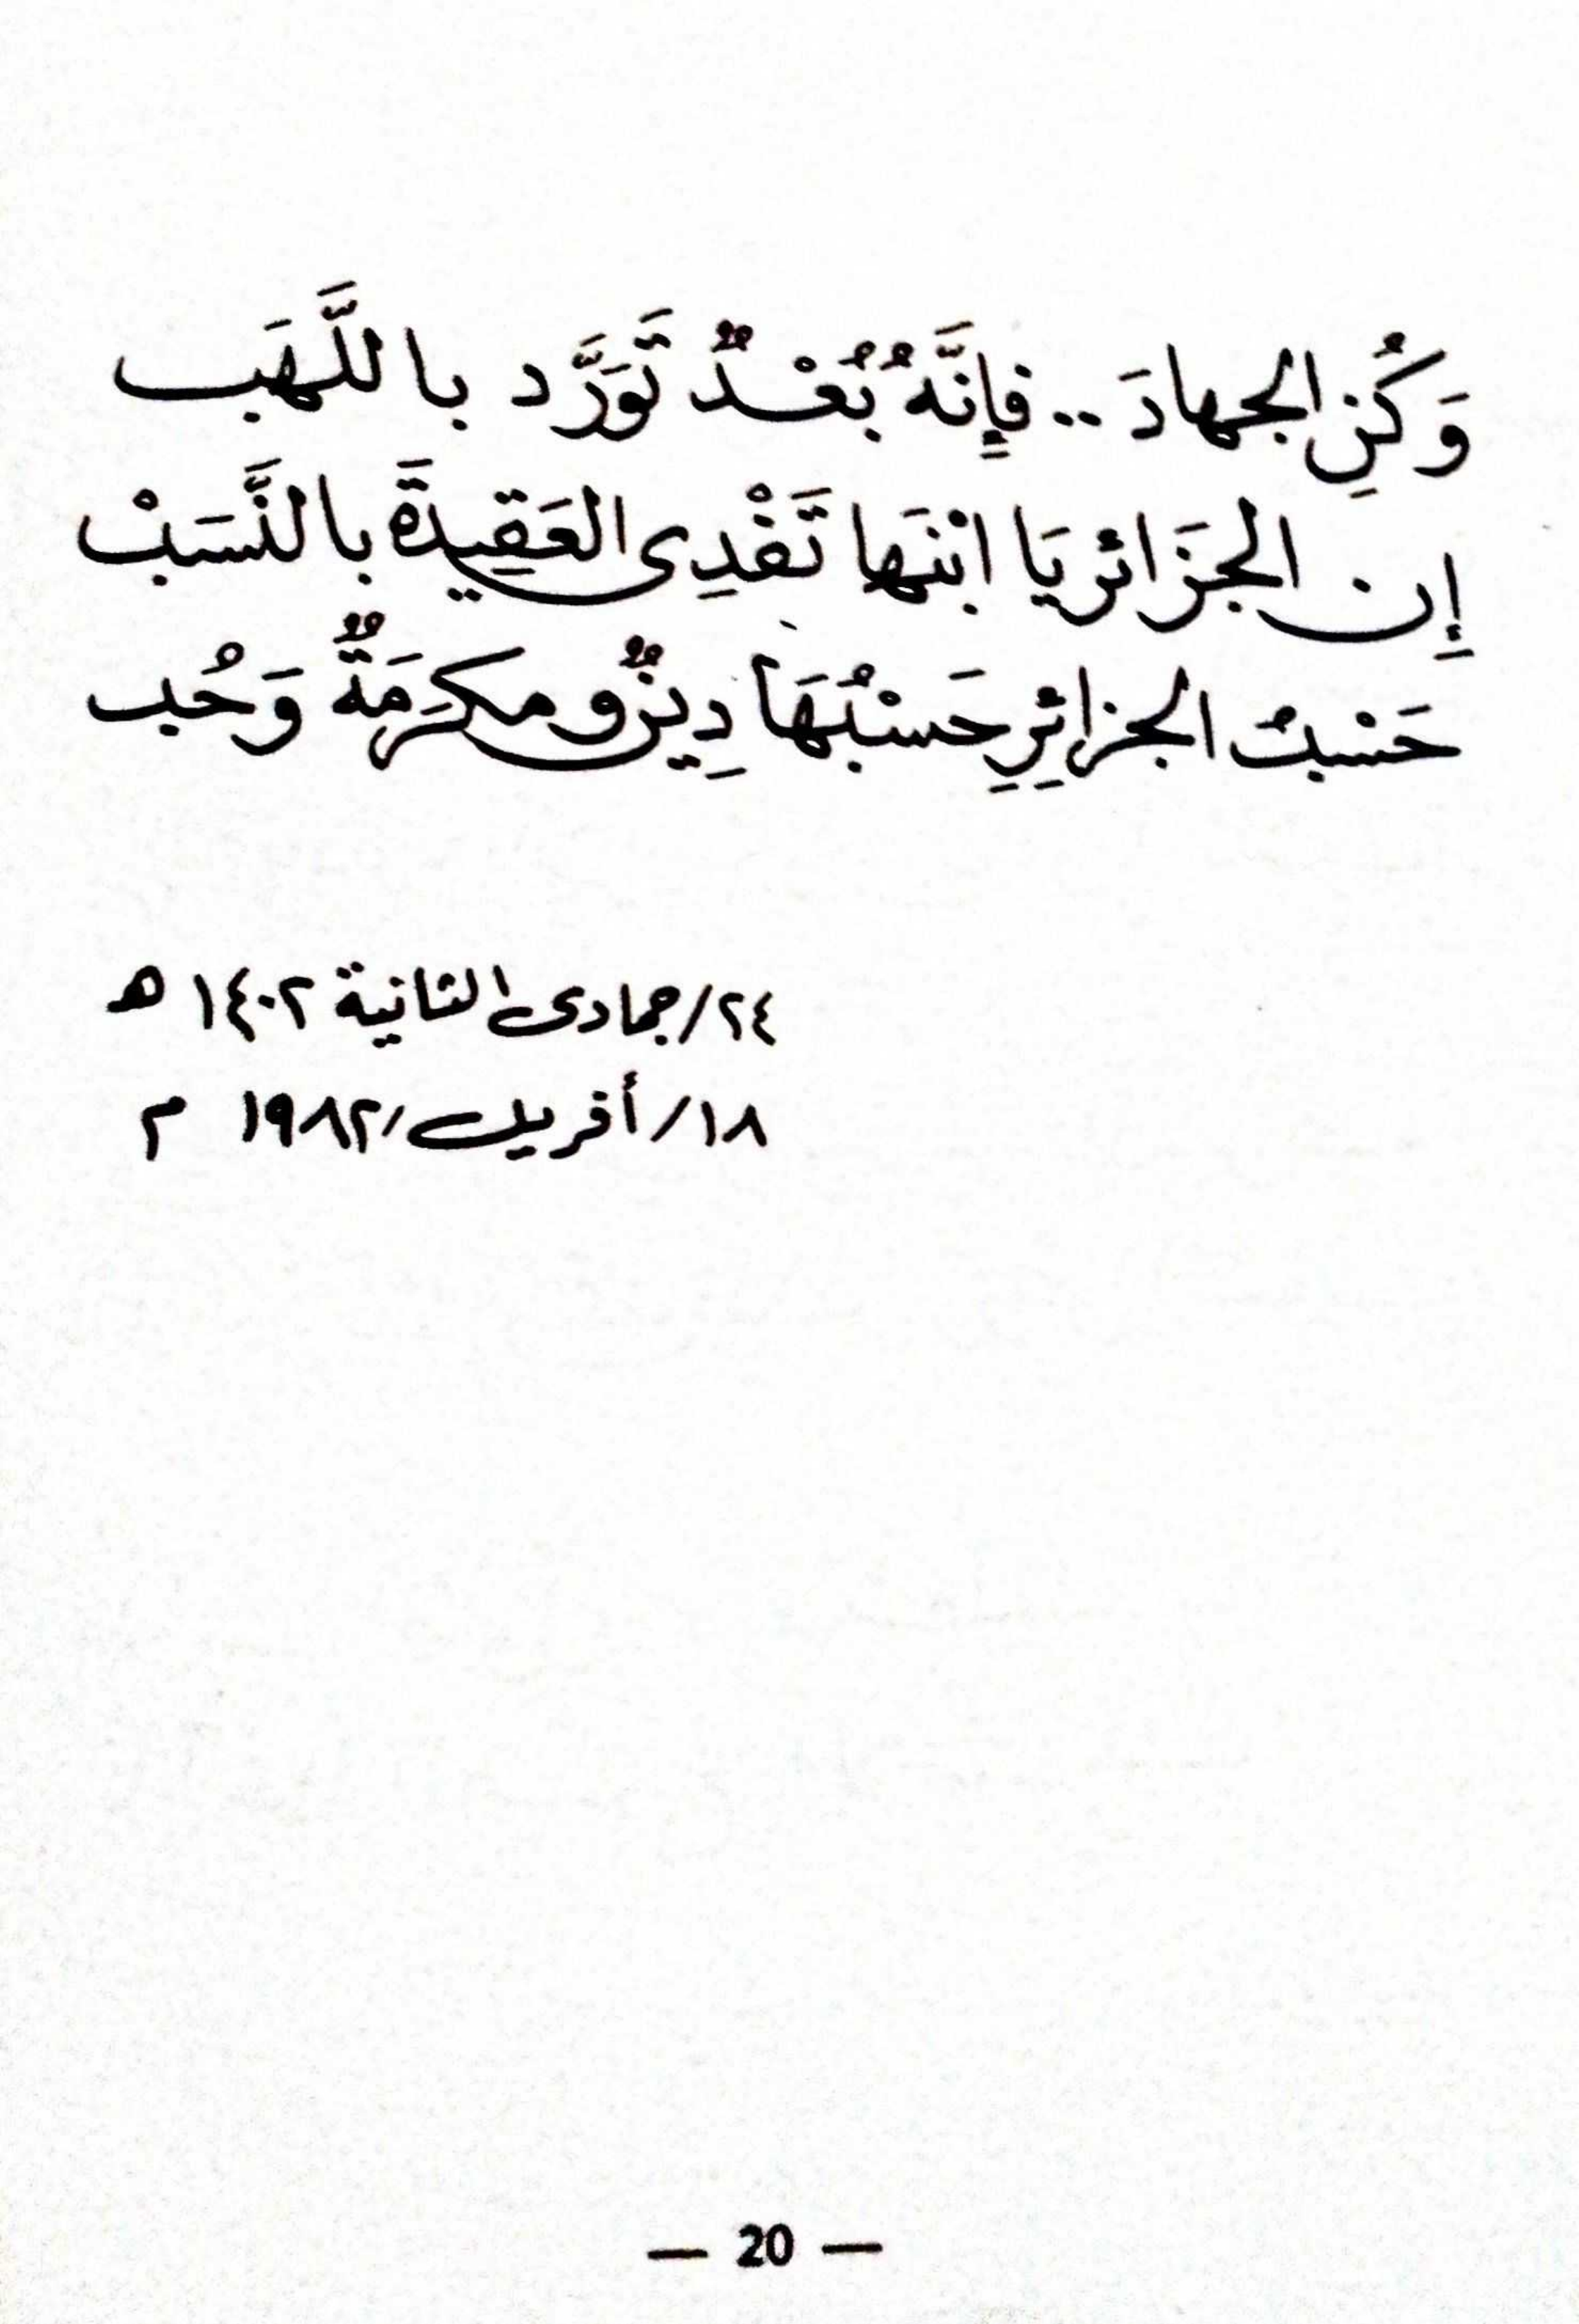 وَكُنِ الجهادَ .. فإِنَّهُ بُعْدٌ تَوَرَّد باللَّهَب
إِن الجَزَائر يَا ابْنَها تَفْدِى العَقِيدَةَ بالنَّسَبْ
حَسْبُ الجزائِرِ حَسْبُهَا دِينٌ ومكرَمَةٌ وَحُب
٢٤/جمادى الثانية ١٤٠٢ ه
١٨/أفريل/١٩٨٢ م
— 20 —